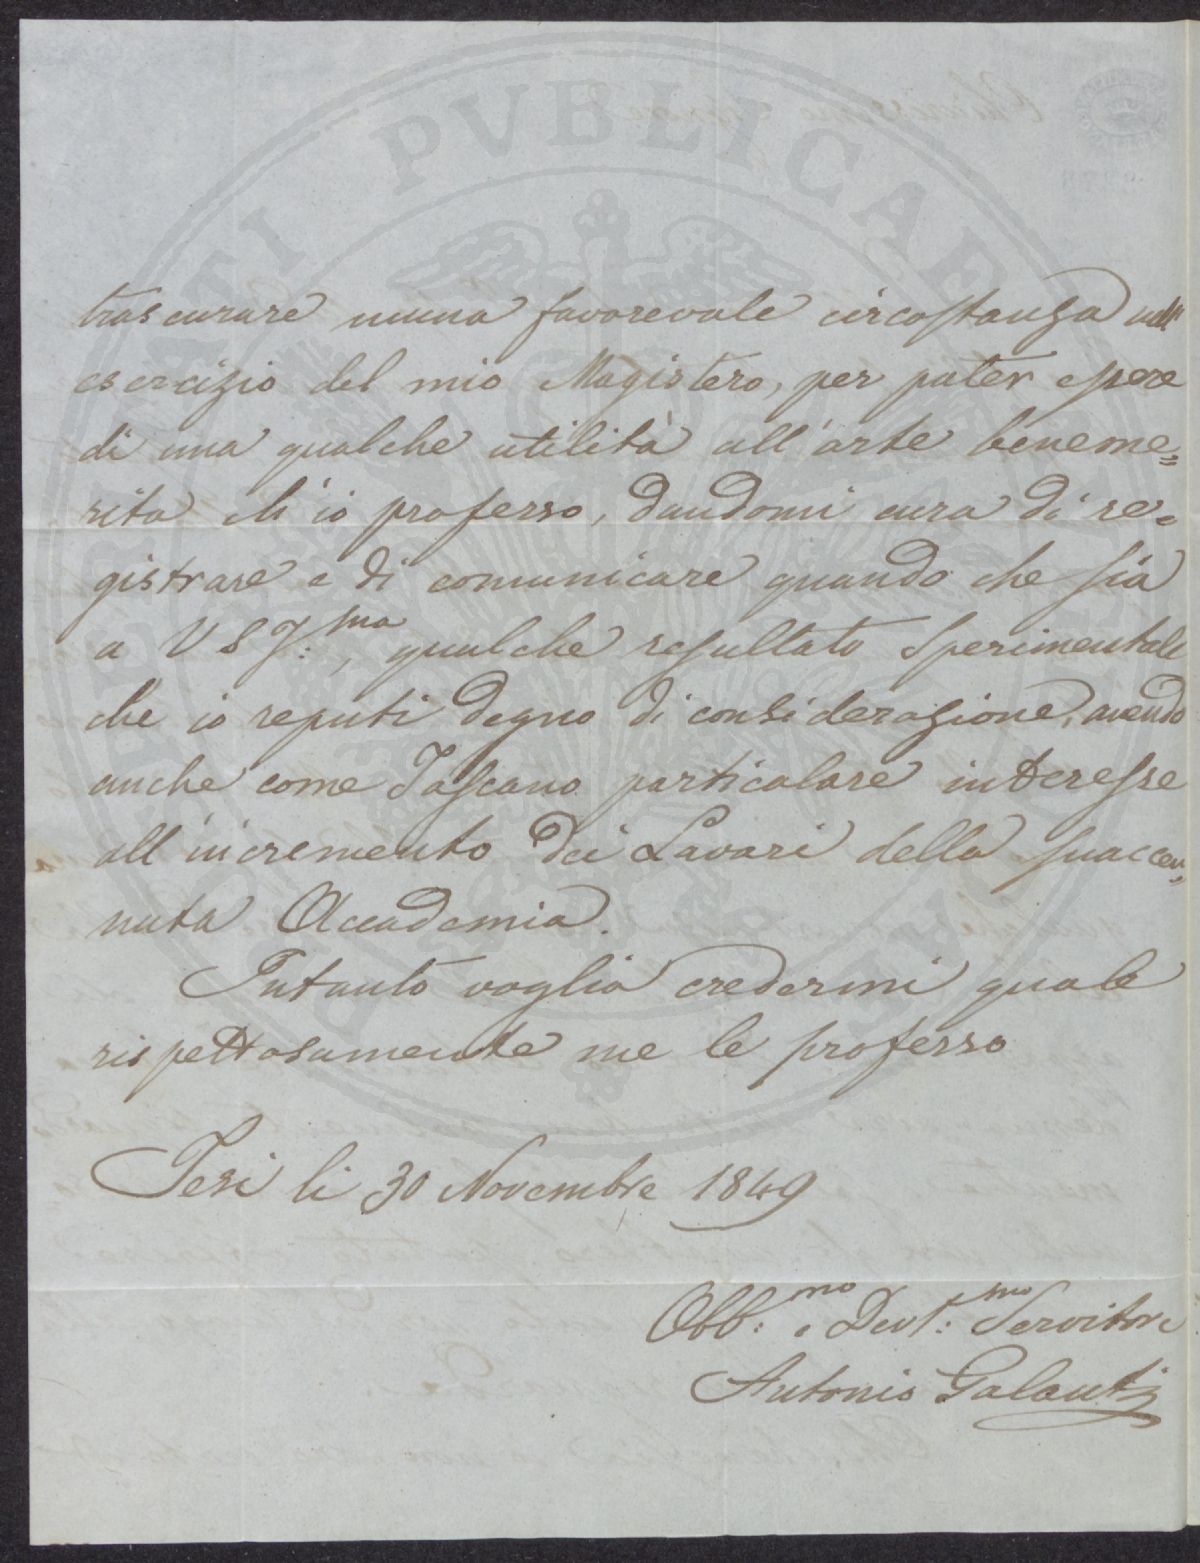 trascurare niuna favorevole circostanza nell'
esercizio del mio Magistero, per poter essere
di una qualche utilità all'arte beneme=
rita ch'io professo, dandomi cura di re=
gistrare e di comunicare quando che sia
a V S I:ma, qualche resultato sperimentale
che io reputi degno di considerazione, avendo
anche come Toscano particolare interesse
all'incremento dei Lavori della suaccen=
nata Accademia.
Intanto voglia credermi quale
rispettosamente me le professo
Jesi li 30 Novembre 1849
Obb:mo e Devt:mo Servitore
Antonio Galanti